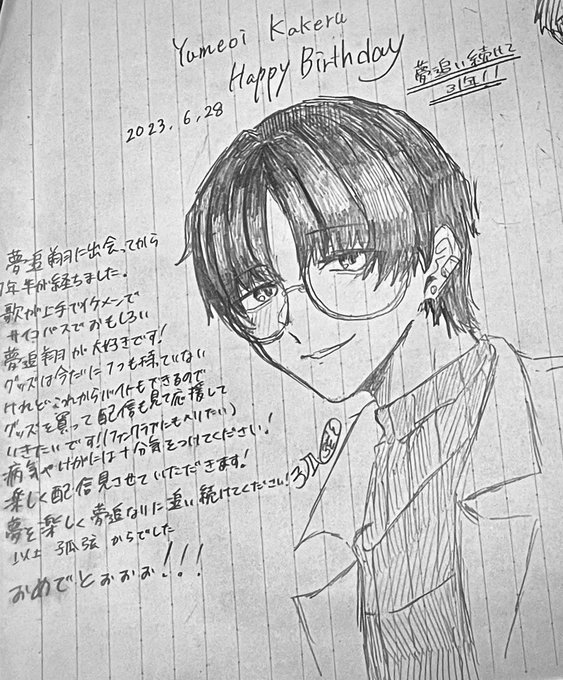 Yumeoi Kakeru
Happy Birthday
夢追い続けて
31年!!
2023.6.28
夢追翔に出会ってから
1年半が経ちました.
歌が上手でイケメンで
サイコパスでおもしろい
夢追翔が大好きです!
グッズは今だに1つも持っていない
けれどこれからバイトもできるので
グッズを買って配信も見て応援して
いきたいです!(ファンクラブにも入りたい)
病気やけがには十分気をつけてください!
楽しく配信見させていただきます!
夢を楽しく夢追なりに追い続けてください!
以上 弧弦 からでした
おめでとぉぉぉ!!!